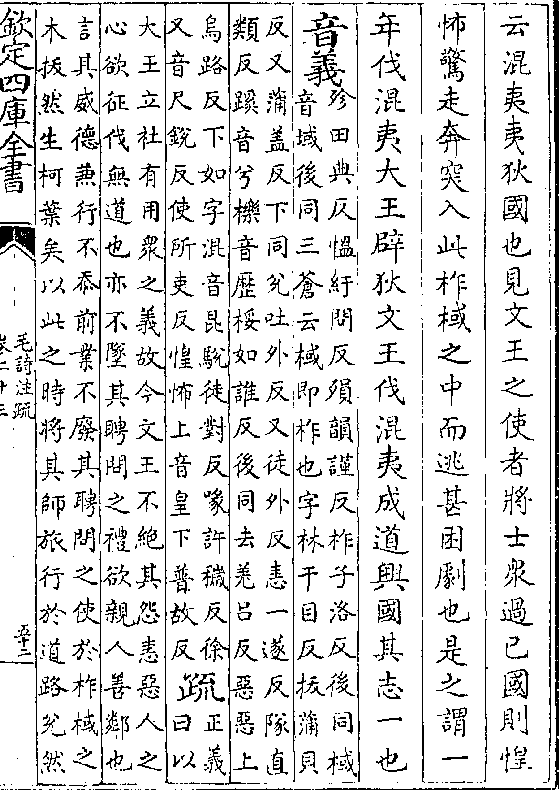 云混夷夷狄國也見文王之使者將士衆過己國則惶
怖驚走奔突入此柞棫之中而逃甚困劇也是之謂一
年伐混夷大王辟狄文王伐混夷成道興國其志一也
音義
殄田典反愠紆問反殞韻謹反柞子洛反後同棫
音域後同三蒼云棫即柞也字林干目反拔蒲貝
反又蒲蓋反下同兊吐外反又徒外反恚一遂反隊直
類反蹊音兮櫟音歴桵如誰反後同去羌吕反惡惡上
烏路反下如字混音昆駾徒對反喙許穢反徐
又音尺銳反使所吏反惶怖上音皇下普故反
疏
正義
曰以
大王立社有用衆之義故今文王不絶其怨恚惡人之
心欲征伐無道也亦不墜其聘問之禮欲親人善鄰也
言其威德兼行不忝前業不廢其聘問之使於柞棫之
木拔然生柯葉矣以此之時將其師旅行於道路兊然
欽定四庫全書
毛詩注疏
卷二十三
五十二